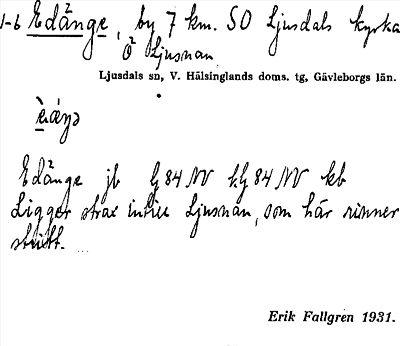 1-6 Edånge, by 7 km. SO Ljusdals kyrka
Ö Ljusnan
Ljusdals sn, V. Hälsinglands doms. tg, Gävleborgs län.
Edånge jb G 84 NV kg 84 NV kb
Ligger strax intill Ljusnan, som här rinner
stritt.
Erik Fallgren 1931.